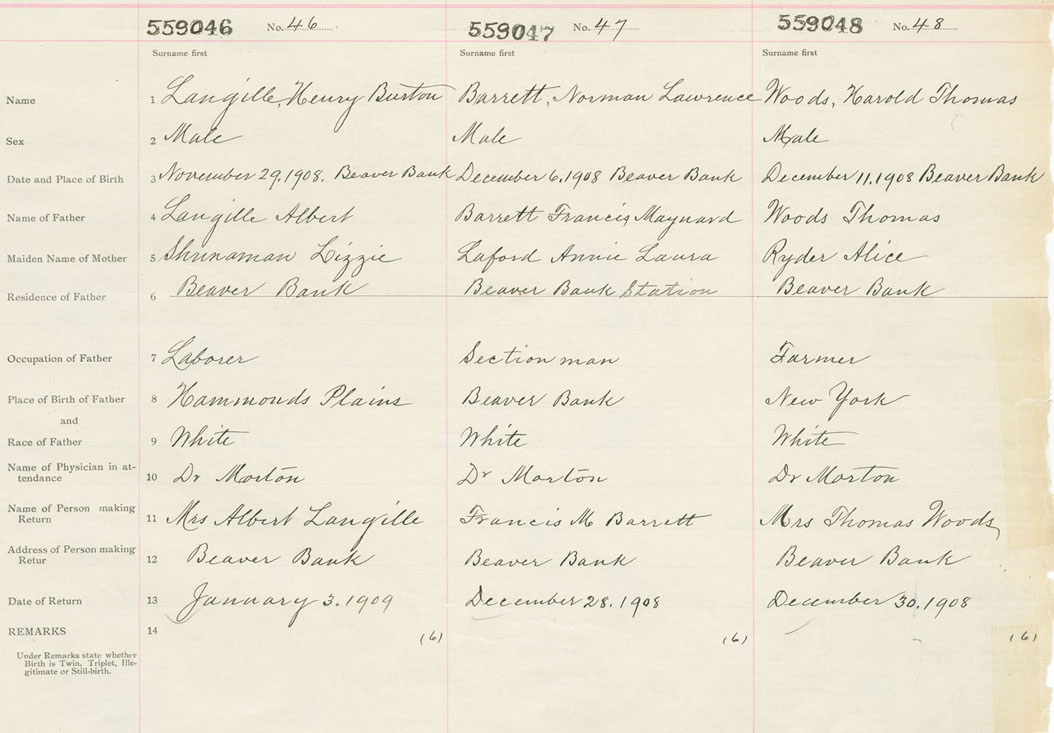 559046 No. 46 559047 No. 47 559048 No. 48
Surname first Surname first Surname first
Name 1 Langille, Henry Burton Barrett, Norman Lawrence Woods, Harold Thomas
Sex 2 Male Male Male
Date and Place of Birth 3 November 29, 1908, Beaver Bank December 6, 1908 Beaver Bank December 11, 1908 Beaver Bank
Name of Father 4 Langille Albert Barrett Francis Maynard Woods Thomas
Maiden Name of Mother 5 Shunaman Lizzie Laford Annie Laura Ryder Alice
Residence of Father 6 Beaver Bank Beaver Bank Station Beaver Bank
Occupation of Father 7 Laborer Section man Farmer
Place of Birth of Father 8 Hammonds Plains Beaver Bank New York
and
Race of Father 9 White White White
Name of Physician in at-
tendance 10 Dr Morton Dr Morton Dr Morton
Name of Person making
Return 11 Mrs Albert Langille Francis M Barrett Mrs Thomas Woods
Address of Person making
Retur 12 Beaver Bank Beaver Bank Beaver Bank
Date of Return 13 January 3, 1909 December 28, 1908 December 30, 1908
REMARKS 14 (6) (6) (6)
Under Remarks state whether
Birth is Twin, Triplet, Ille-
gitimate or Still-birth.